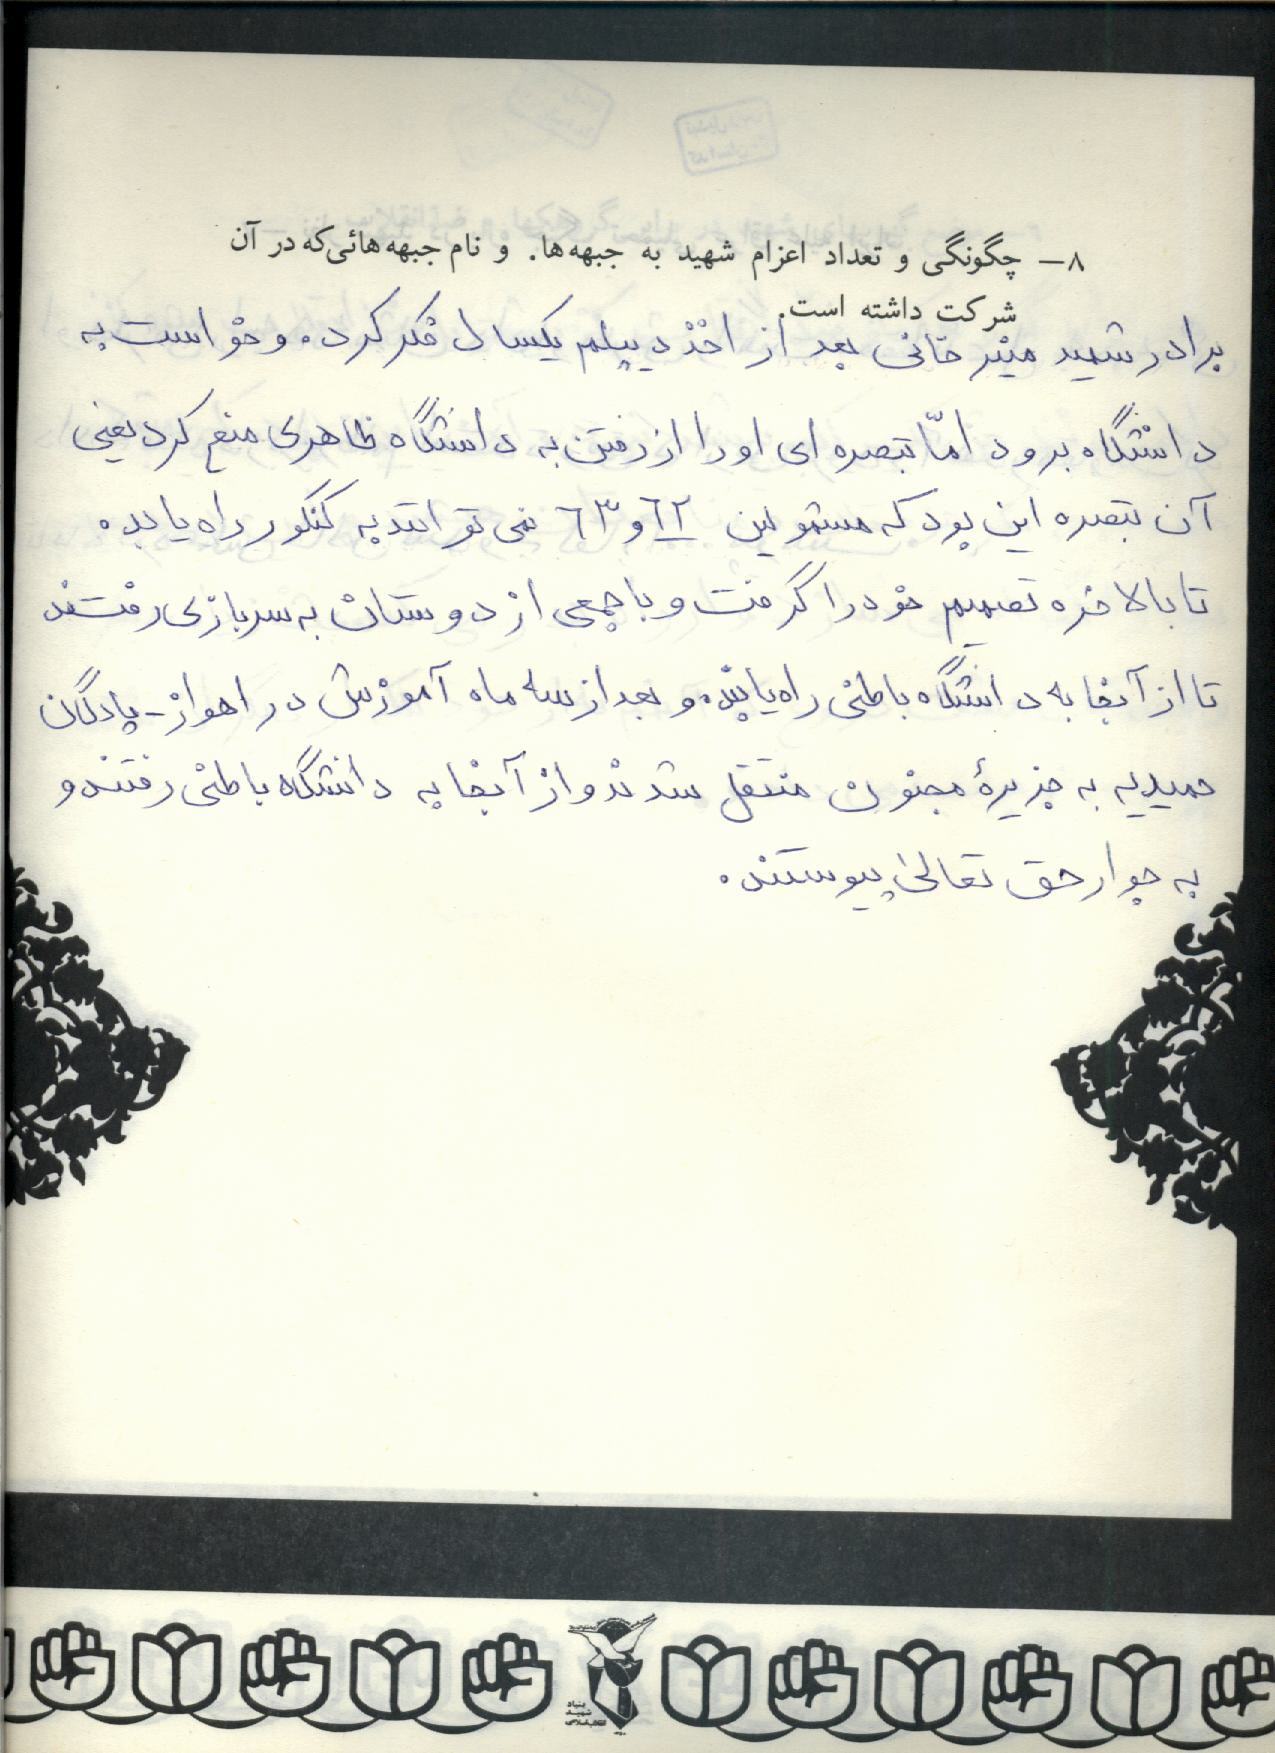 ۸ – چگونگی و تعداد اعزام شهید به جبهه‌ها. و نام جبهه‌هائی‌که در آن
شرکت داشته است.
برادر شهید میر خانی بعد از اخذ دیپلم یکسال فکر کرد. و خواست به
دانشگاه برود امّا تبصره ای او را از رفتن به دانشگاه ظاهری منع کرد یعنی
آن تبصره این بود که مشمولین ٦٢ و ٦٣ نمی تواند به کنکور راه یابد.
تا بالاخره تصمیم خود را گرفت و با جمعی از دوستان به سربازی رفتند
تا از آنجا به دانشگاه باطنی راه یابند. و بعد از سه ماه آموزش در اهواز - پادگان
حمیدیه به جزیرهٔ مجنون منتقل شدند و از آنجا به دانشگاه باطنی رفتند و
به جوار حق تعالی پیوستند.
بنیاد
شهید
انقلاب اسلامی